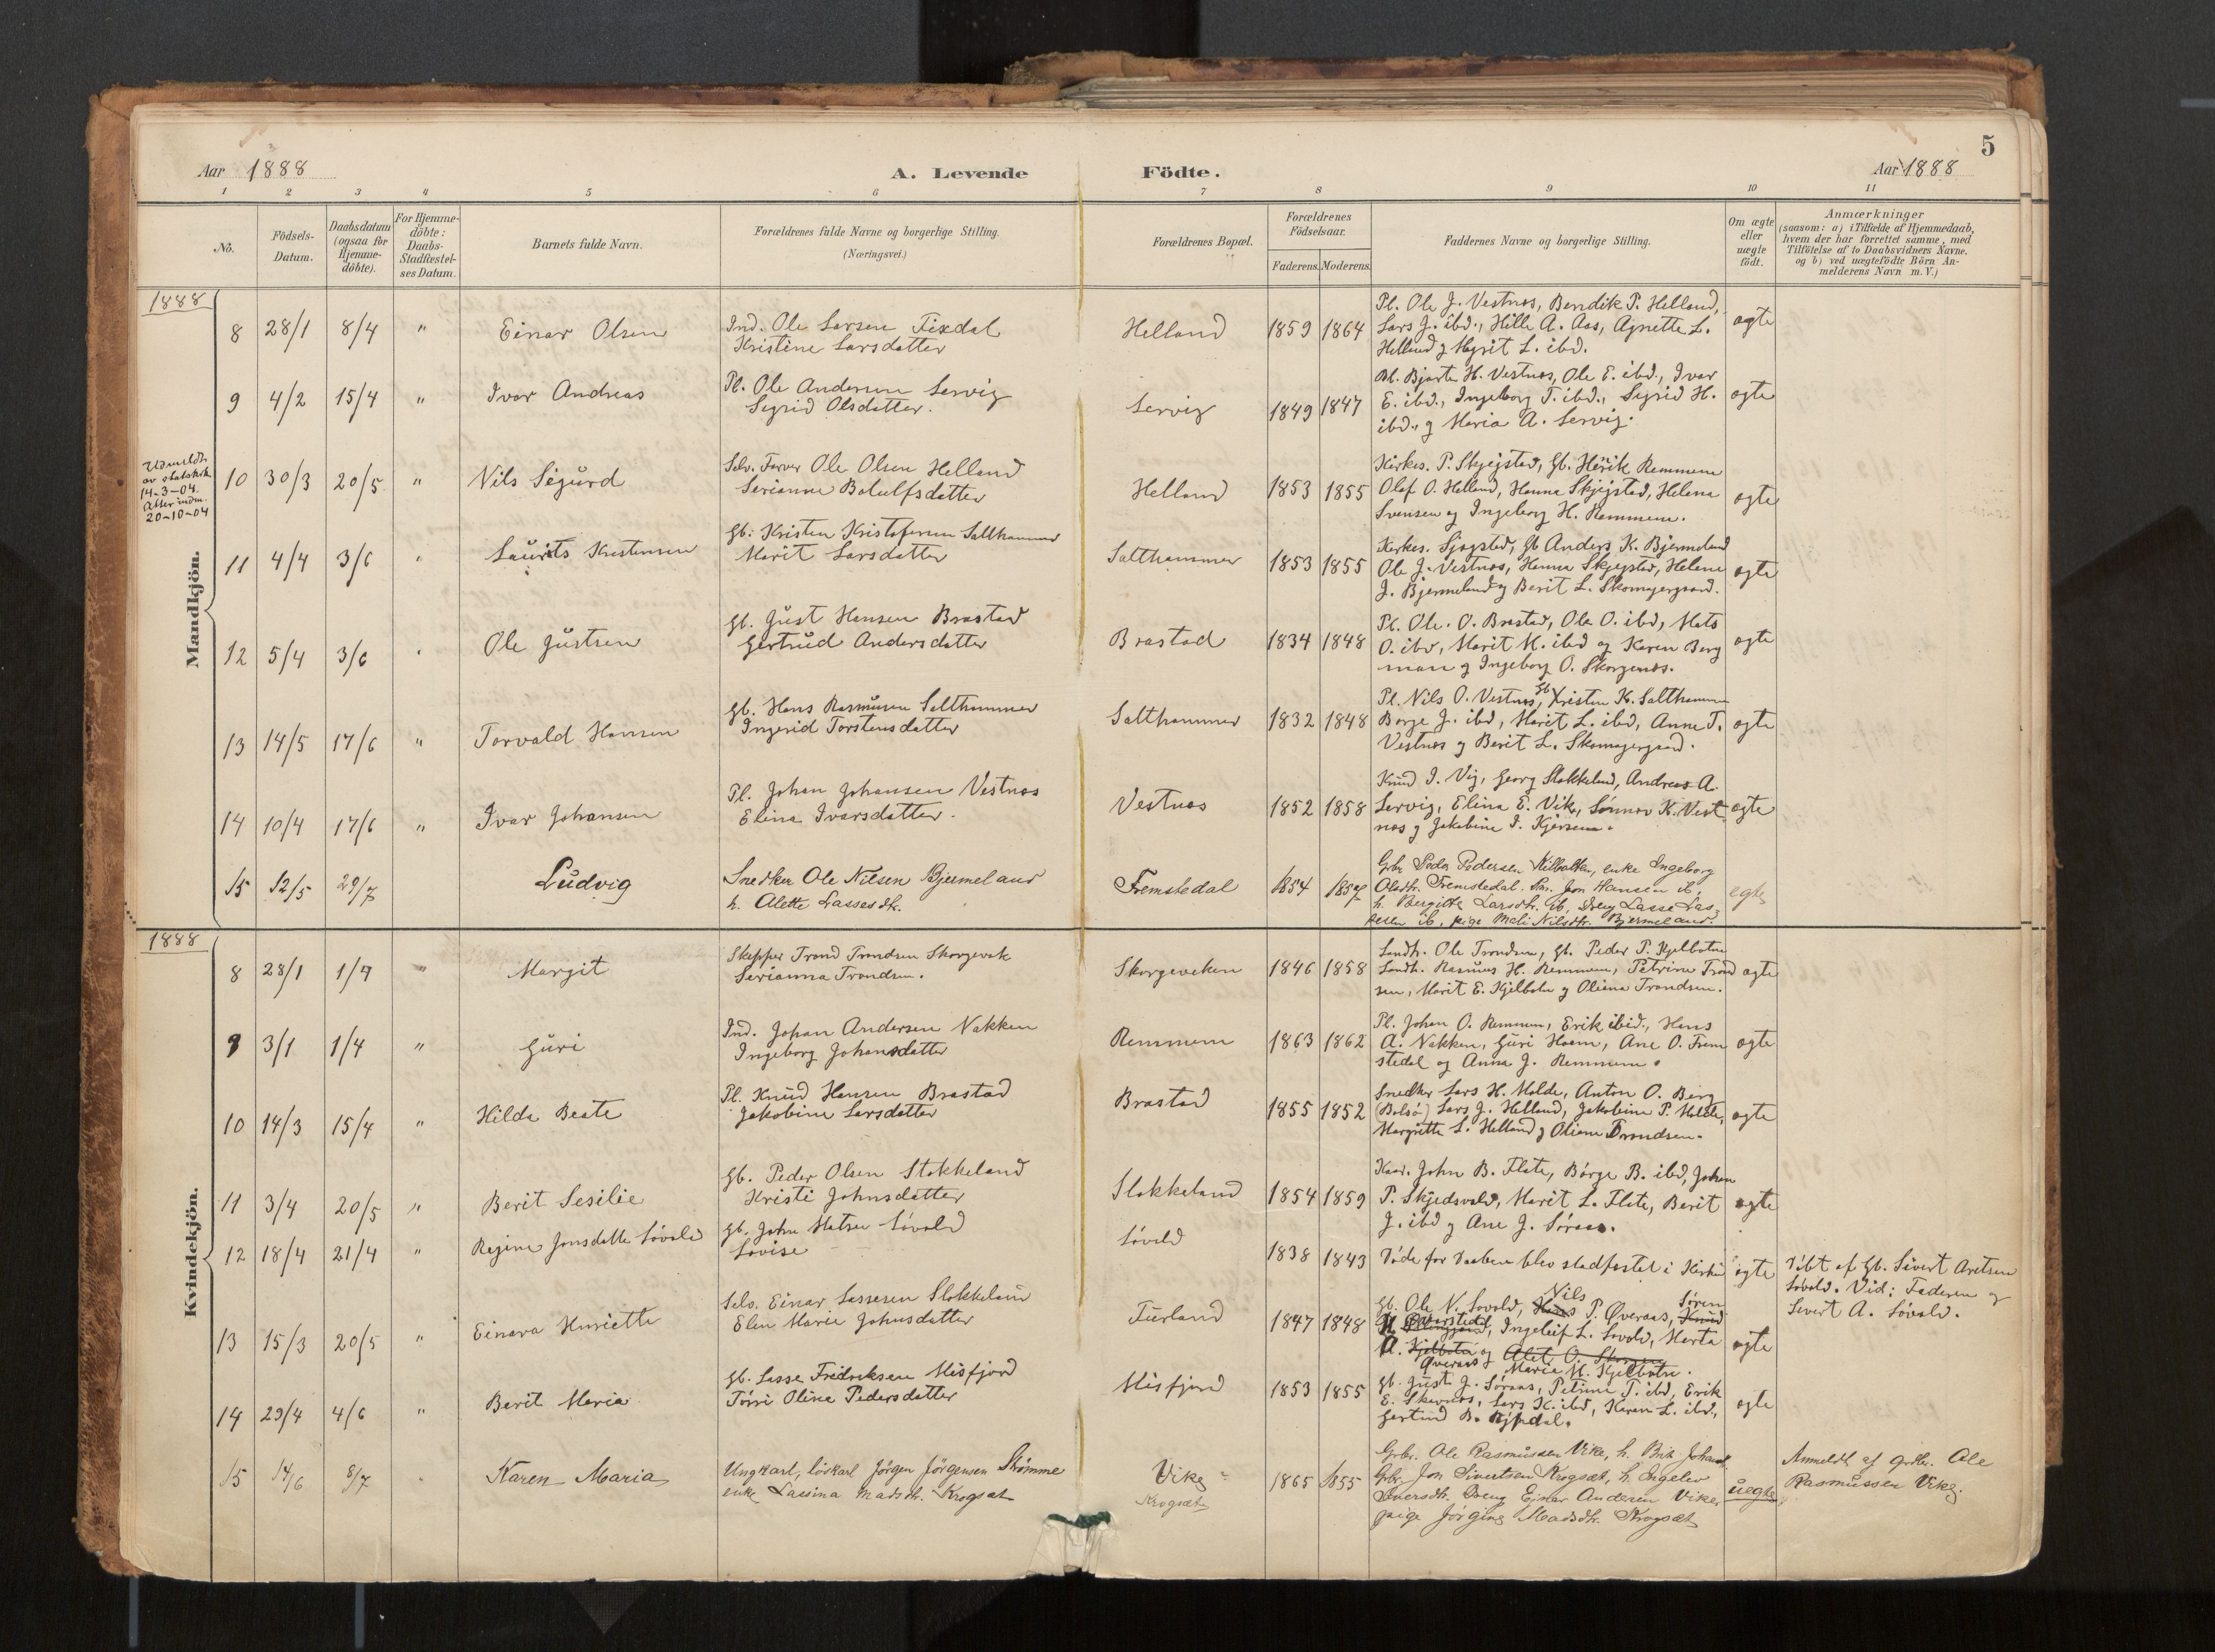 5
Aar 1888
A. Levende Födte.
Aar 1888
1 2 3 4 5 6 7 8 9 10 11
No.
Födsels-
Datum.
Daabsdatum
(ogsaa for
Hjemme-
döbte).
For Hjemme-
döbte:
Daabs-
Stadfæstel-
ses Datum.
Barnets fulde Navn.
Forældrenes fulde Navne og borgerlige Stilling.
(Næringsvei.)
Forældrenes Bopæl.
Forældrenes
Födselsaar.
Faderens. Moderens.
Faddernes Navne og borgerlige Stilling.
Om ægte
eller
uægte
födt.
Anmærkninger
(saasom: a) i Tilfælde af Hjemmedaab,
hvem der har forrettet samme, med
Tilföielse af to Daabsvidners Navne.
og b) ved uægtefödte Börn An-
melderens Navn m. V.)
1888
Mandkjön.
8 28/1 8/4 " Einar Olsen
Ind. Ole Larsen Fixdal
Kristine Larsdatter
Helland 1859 1864
Pl. Ole J. Vestnes, Bendik P. Helland,
Lars J. ibd., Hille A. Aas, Agnette L.
Helland g Magrit L. ibd.
ægte
9 4/2 15/4 " Ivar Andreas
Pl. Ole Andersen Servig
Sigrid Olsdatter.
Servig 1849 1847
Pl. Bjarte H. Vestnes, Ole E. ibd., Ivar
E. ibd., Ingeborg T. ibd., Sigrid H.
ibd., g Maria A. Servig.
ægte
Udmeldt
av statskirk
14-3-04.
Atter indm.
20-10-04
10 30/3 20/5 " Nils Sigurd
Selv. Farver Ole Olsen Helland
Serianne Botulfsdatter
Helland 1853 1855
Kirkes. P. Skjegstad, Gb. Henrik Remmem
Olaf O. Helland, Hanna Skjegstad, Helena
Svensen og Ingeborg H. Remmem.
ægte
11 4/4 3/6 " Laurits Kristensen
Gb: Kristen Kristofersen Salthammer
Marit Larsdatter
Salthammer 1853 1855
Kirkes. Sjegstad, Gb Anders K. Bjermeland
Ole J. Vestnes, Hanna Skjegstad, Helene
J. Bjermeland g Berit L. Skomagergaard.
ægte
12 5/4 3/6 " Ole Justsen
Gb. Just Hansen Brastad
Gertrud Andersdatter
Brastad 1834 1848
Pl. Ole. O. Brastad, Ole O. ibd, Mats
O. ibd, Marit M. ibd og Karen Berg
man g Ingeborg O. Skorgenes.
ægte
13 14/5 17/6 " Torvald Hansen
Gb. Hans Rasmusen Salthammer
Ingerid Torstensdatter
Salthammer 1832 1848
Pl. Nils O. Vestnes, Gb Kristen K. Salthammer
Børge J. ibd, Marit L. ibd, Anne T.
Vestnes g Berit L. Skomagergaard.
ægte
14 10/4 17/6 " Ivar Johansen
Pl. Johan Johansen Vestnes
Elina Ivarsdatter.
Vestnes 1852 1858
Knud I. Vig, Georg Stokkeland, Andreas A.
Servig, Elina E. Vik, Sønnov K. Vest
nes g Jakobine I. Kjersem.
ægte
15 12/5 29/7 Ludvig
Snedker Ole Nilsen Bjermeland
h. Alette Lassesdtr.
Fremstedal 1854 1857
Gbr. Peder Pedersen Kilbotten, enke Ingeborg
Olsdtr. Fremstedal. Jon Hansen ib,
h. Bergitte Larsdtr. ib, Dreng Lasse Las-
sesen ib, pige Mali Nilsdtr. Bjermeland.
egte
1888
Kvindekjön.
8 28/1 1/4 " Margit
Skipper Trond Trondsen Skorgevik
Serianna Trondsen.
Skorgeviken 1846 1858
Landh. Ole Trondsen, Gb. Peder P. Kjelboten
Landh. Rasmus H. Remmem, Petrine Trond
sen, Marit E. Kjelboten g Oliana Trondsen.
ægte
9 3/1 1/4 " Guri
Ind. Johan Andersen Nakken
Ingeborg Johansdatter
Remmem 1863 1862
Pl. Johan O. Remmem, Erik ibid., Hans
A. Nakken, Guri Hoem, Ane O. Frem
stedal og Anna J. Remmem.
ægte
10 14/3 15/4 " Hilda Beate
Pl. Knud Hansen Brastad
Jakobine Larsdatter
Brastad 1855 1852
Snedker Lars H. Molde, Anton O. Berg
(Bolsø) Lars J. Helland, Jakobine P. Molde,
Margritte L. Helland g Oliane Trondsen.
ægte
11 3/4 20/5 " Berit Sesilie
Gb. Peder Olsen Stokkeland
Kristi Johnsdatter
Stokkeland 1854 1859
Kaar. John B. Flate, Børge B. ibd, Johan
P. Skjedsvold, Marit L. Flate, Berit
J. ibd g Ane J. Søraas.
ægte
12 18/4 21/4 " Regine Jonsdatte Løvold
Gb. John Matsen Løvold
Lovise
Løvold 1838 1843
Døde før Daaben blev stadfæstet i Kirken
ægte
Døbt af Gb. Sivert Aretsen
Løvold. Vid: Faderen g
Sivert A. Løvold.
13 15/3 20/5 " Einara Henriette
Selv. Einar Lassesen Stokkeland
Elen Marie Johnsdatter
Furland 1847 1848
Gb. Ole N. Lovold, Hans Nils P. Øveraas, Knud Søren
Ingeleif L. Lovold, Marta
A. Kjelboten Øveraas og Alet. O. Skorgen
Maria M. Kjelboten.
ægte
14 29/4 4/6 " Berit Maria
Gb. Lasse Fredriksen Misfjord
Tørri Oline Pedersdatter
Misfjord 1853 1855
Gb. Just J. Søraas, Petrine T. ibd, Erik
E. Skorgenes, Lars K. ibd, Karen L. ibd.,
Gertrud B.
ægte
15 14/6 8/7 Karen Maria
Ungkarl, løskarl Jørgen Jørgensen Strømme
enke Lassina Madsdtr. Krogsæt
Vike
Krogsæt
1865 1855
Grbr. Ole Rasmussen Vike, h. Brit Johand.
Grbr. Jon Sivertsen Krogsæt, h. Ingelev
Iversdtr. Dreng Einar Andersen Vike,
pige Jørgine Madsdtr. Krogsæt
uegte
Anmeldt af grdbr. Ole
Rasmussen Vike.